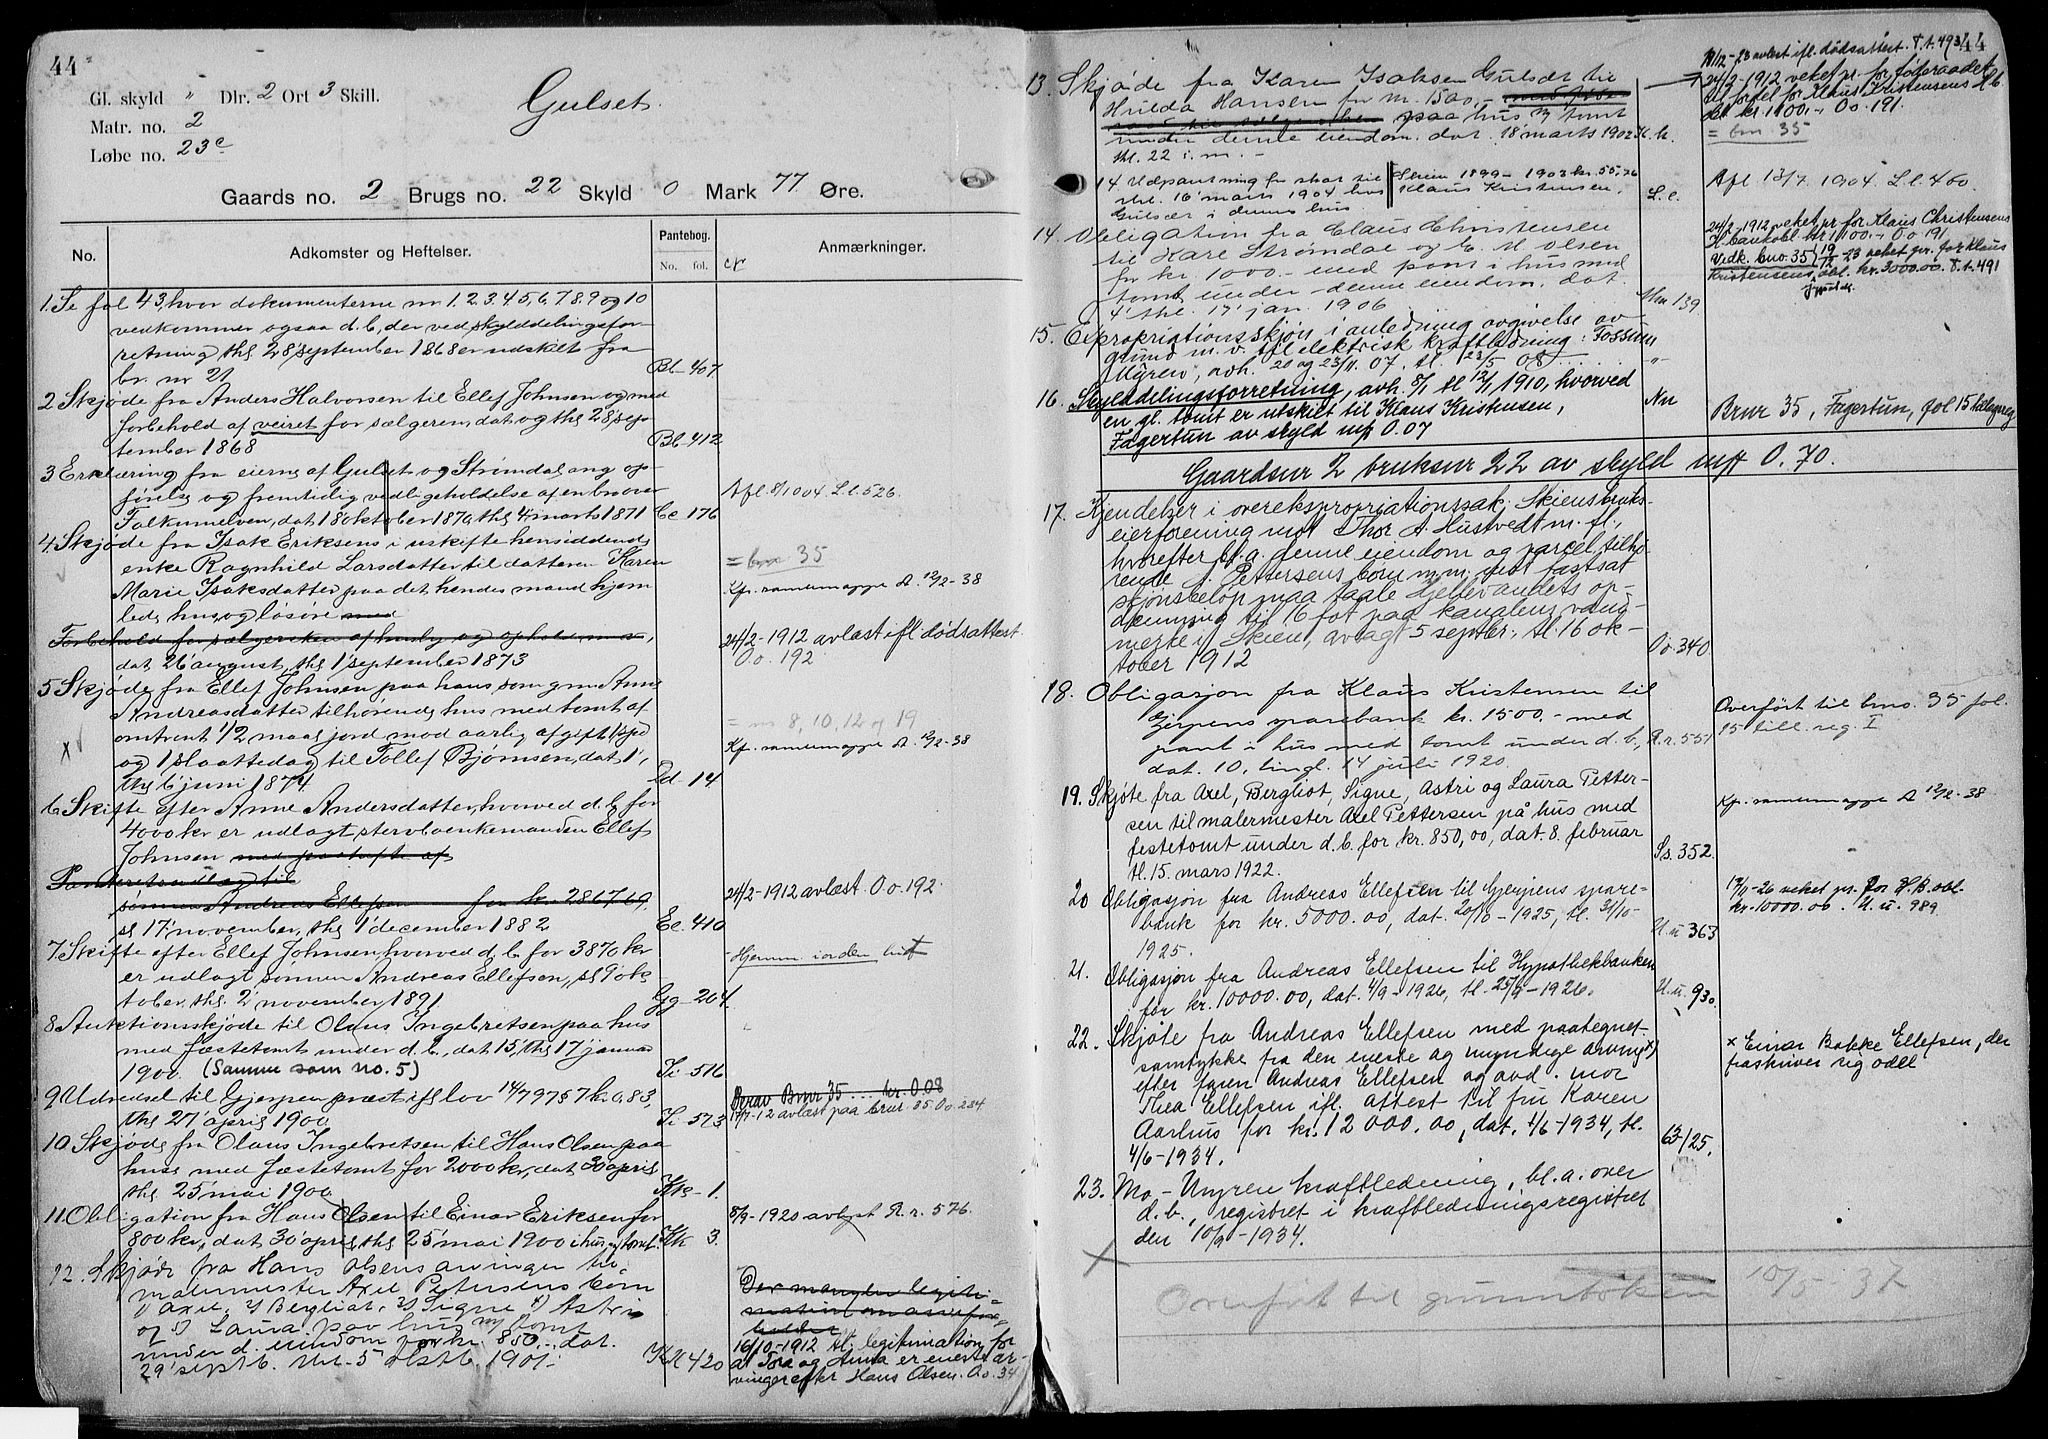 44
Gl. skyld " Dlr. 2 Ort 3 Skill.
Matr. no. 2
Løbe no. 23c
Gulset.
Gaards no. 2 Brugs no. 22 Skyld 0 Mark 77 Øre.
No. Adkomster og Heftelser. Pantebog. No. fol. Anmærkninger.
1. Se fol 43, hvor dokumenterne nr 1.2.3.4.5.6.7.8.9 og 10
vedkommer ogsaa d.b., der ved skylddelingsfor-
retning thg 28 september 1868 er udskilt fra
br. nr 21 Bb-407
2 Skjøde fra Anders Halvorsen til Ellef Johnsen og med
forbehold af veiret for sælgeren, dat og thg 28 sep-
tember 1868 Bb-412
3 Erklæring fra eierne af Gulset og Strømdal, ang op-
førelse og fremtidig vedligeholdelse af en bro over
Falkumelven, dat 18 oktober 1870, thg 4 marts 1871 Cc-176
Afl 8/10 04 L.l. 526.
4 Skjøde fra Isak Eriksens i uskifte hensiddende
enke Ragnhild Larsdatter til datteren Karen
Marie Isaksdatter paa det hendes mand hjem-
lede hus og løsøre med
Forbehold for sælgersken af husly og ophold, m.v.,
dat 26 august, thg 1 september 1873
= bnr 35
Kfr. sammenmappe A. 12/2-38
24/2-1912 avlæst ifl dødsattest.
O.o. 192
5 Skjøde fra Ellef Johnsen paa hans som gm Anne
Andreasdatter tilhørende hus med tomt af
omtrent 1/2 maal jord mod aarlig afgift 1 spd
og 1 slaattedag til Tollef Bjørnsen, dat 1,
thg 6 juni 1874 Dd-14
= nr 8, 10, 12 og 19
Kfr. sammenmappe A. 12/2-38
6 Skifte efter Anne Andersdatter, hvorved d.b. for
4000 kr er udlagt stervboenkemanden Ellef
Johnsen med pantheft af
Panteretsudlæg til
sønnen Andreas Ellefsen for kr. 2867,69,
sl 17 november, thg 1 december 1882 Ee-410
24/2-1912 avlæst. O.o. 192.
7 Skifte efter Ellef Johnsen, hvorved d.b. for 3870 kr
er udlagt sønnen Andreas Ellefsen, sl 9 ok-
tober, thg 2 november 1891 Gg-204.
8 Auktionsskjøde til Olaus Ingebretsen paa hus
med fæstetomt under d.b., dat 15, thg 17 januar
1900. (Samme som no. 5) Ii-516
9 Udredsel til Gjerpen præst ifl lov 14/7 97 57 kr. 0,83,
thg 27 april 1900 Ii-573
Herav Bnr 35 ... kr. 0.08
avlæst paa bnr. 35 O.o. 234
10 Skjøde fra Olaus Ingebretsen til Hans Olsen paa
huse med fæstetomt for 2000 kr, dat 30 april
thg 25 mai 1900 Kk-1.
11 Obligation fra Hans Olsen til Einar Eriksen for
800 kr, dat 30 april, thg 25 mai 1900 i hus og tomt. Kk 3.
8/9-1920 avlyst R.r. 576.
12. Skjøde fra Hans Olsens arvinger til
malermester Axel Petersens børn
1) Axel, 2) Bergliot, 3) Signe 4) Astri
og 5) Laura paa hus m/ tomt
under d. eiendom for kr. 850.-, dat.
29 septb. thl. 5 oktb. 1901. KK 420
Der mangler legiti-
mation om arvefor-
holdet
16/10-1912 tl. legitimation for
at Tora og Anna er eneste ar-
vinger efter Hans Olsen. O.o. 34
44
13. Skjøde fra Karen Isaksen Gulset til
Hulda Hansen for kr. 1500,-
paa hus m/ tomt
under denne eiendom. dat. 18 marts 1902
thl. 22 s.m. -
19/12-23 avlæst ifl. dødsattest. T.t. 493
24/2-1912 veket pr. for føderaadet
til fordel for Klaus Kristensens Hb.
obl kr 1100.- O.o. 191.
= bnr 35
14 Udpantning for skat til Skien 1899-1903 kr. 55,76
thl. 16 marts 1904 hos Klaus Kristensen,
Gulset i dennes hus. L.l.
Afl 13/7 1904. L.l. 460.
14. Obligation fra Claus Christensen
til Kare Strømdal og C. H. Olsen
for kr 1000.- med pant i hus med
tomt under denne eiendom, dat.
4 thl. 17 jan. 1906 Mm 139
24/2-1912 veket pr for Klaus Christensens
H.bankobl kr 1100.- O.o 191
Vedk. bno. 35 19/12 23 veket pr. for Klaus
Kristensens obl. kr. 3000.00. T.t. 491
15. Expropriationsskjøn i anledning avgivelse av
grund m.v. til elektrisk kraftledning: Fossum-
Myren, avh. 20 og 23/11. 07. tl. 23/5 08 "
16. Skylddelingsforretning, avh. 8/1 tl 12/1 1910, hvorved
en gl. tomt er utskilt til Klaus Kristensen,
Fagertun av skyld mk 0.07 Nn
Bnr 35, Fagertun, fol 15 tillægsreg
Gaardsnr 2 bruksnr 22 av skyld mk 0.70.
17. Kjendelser i overekspropriationssak: Skiens bruks-
eierforening mot Thor A. Hustvedt m.fl.,
hvorefter bl.a. denne eiendom og parcel tilhø-
rende J. Pettersens børn m.m. mot fastsat
skjønsbeløp maa taale Hjellevandets op-
dæmning til 16 fot paa kanalens vand-
merke i Skien, avlagt 5 septbr., tl. 16 ok-
tober 1912 O.o. 340
18. Obligasjon fra Klaus Kristensen til
Gjerpens sparebank kr. 1500.- med
pant i hus med tomt under d.b.,
dat. 10, tingl. 14 juli 1920. R.r. 551
Overført til bno. 35 fol.
15 till. reg. I
19. Skjøte fra Axel, Bergliot, Signe, Astri og Laura Petter-
sen til malermester Axel Pettersen på hus med
festetomt under d.b. for kr. 850,00, dat. 8. februar
tl. 15. mars 1922. Ss. 352.
Kfr. sammenmappe A 12/2-38
20 Obligasjon fra Andreas Ellefsen til Gjerpens spare-
bank for kr. 5000.00, dat. 20/10-1925, tl. 31/10-
1925. U.u 363
veket pr. for H.B. obl.
kr. 10000.00. U.u. 989.
21. Obligasjon fra Andreas Ellefsen til Hypothekbanken
for kr. 10000.00, dat. 4/9-1926, tl. 25/9-1926. U.u. 930.
22. Skjøte fra Andreas Ellefsen med paategnet
samtykke fra den eneste og myndige arving x)
efter faren Andreas Ellefsen og avd. mor
Thea Ellefsen ifl. attest til fru Karen
Aarhus for kr. 12 000.00, dat. 1/6-1934, tl.
4/6-1934. 63/125.
x Einar Bakke Ellefsen, der
fraskriver sig odel
23. Mo-Myren kraftledning, bl.a. over
d.b., registret i kraftledningsregistret
den 10/9-1934.
Overført til grunnboken 10/5-37